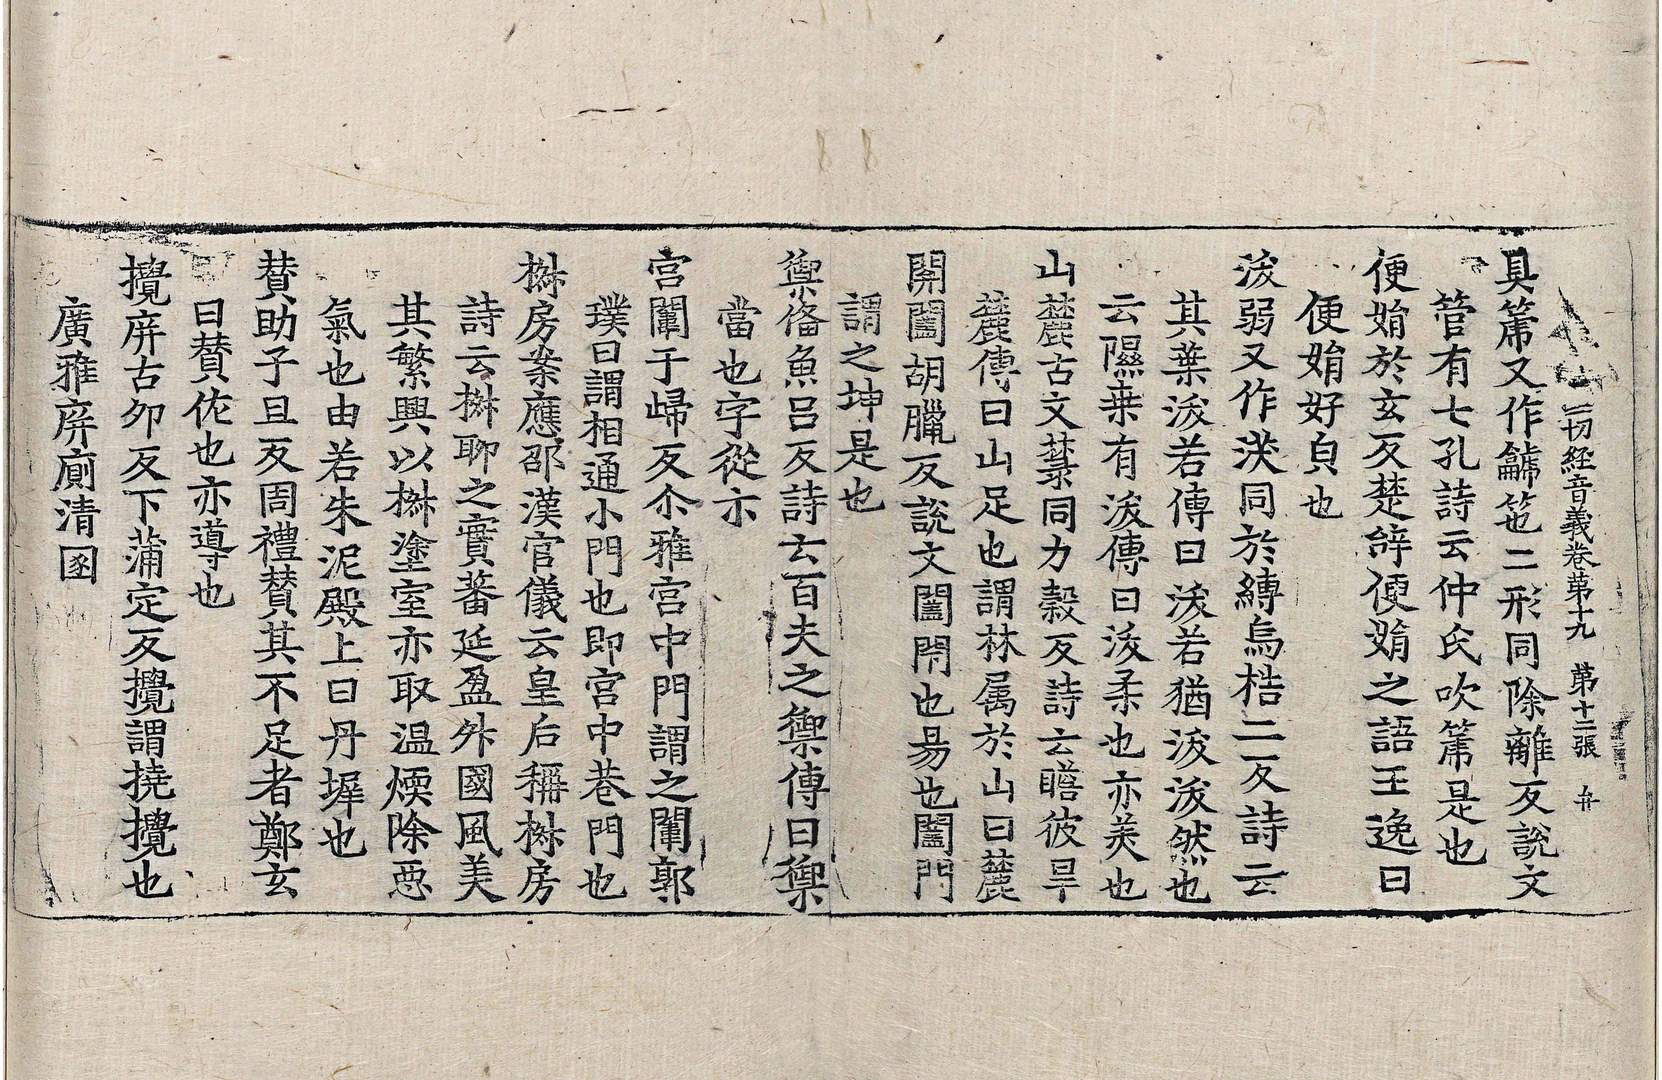 一切經音義卷第十九 第十二張 弁
具篪又作龥笹二形同除離反說文
管有七孔詩云仲氏吹篪是也
便娟於玄反楚辝便娟之語王逸曰
便娟好皃也
沷弱又作渶同於縛烏梏二反詩云
其葉沷若傳曰沷若猶沷沷然也
云隰桒有沷傳曰沷柔也亦美也
山麓古文禁同力穀反詩云瞻彼旱
麓傳曰山足也謂林属於山曰麓
開闔胡臘反說文闔閇也易也闔門
謂之坤是也
禦俻魚呂反詩云百夫之禦傳曰禦
當也字從示
宮闈于歸反尒雅宮中門謂之闈郭
璞曰謂相通小門也即宮中巷門也
椒房案應邵漢官儀云皇后稱椒房
詩云椒聊之實蕃延盈外國風美
其繁興以椒塗室亦取温煗除惡
氣也由若朱泥殿上曰丹墀也
賛助子旦反周禮賛其不足者鄭玄
曰賛佐也亦導也
攪屏古夘反下蒲定反攪謂撓攪也
廣雅屏廁清圂